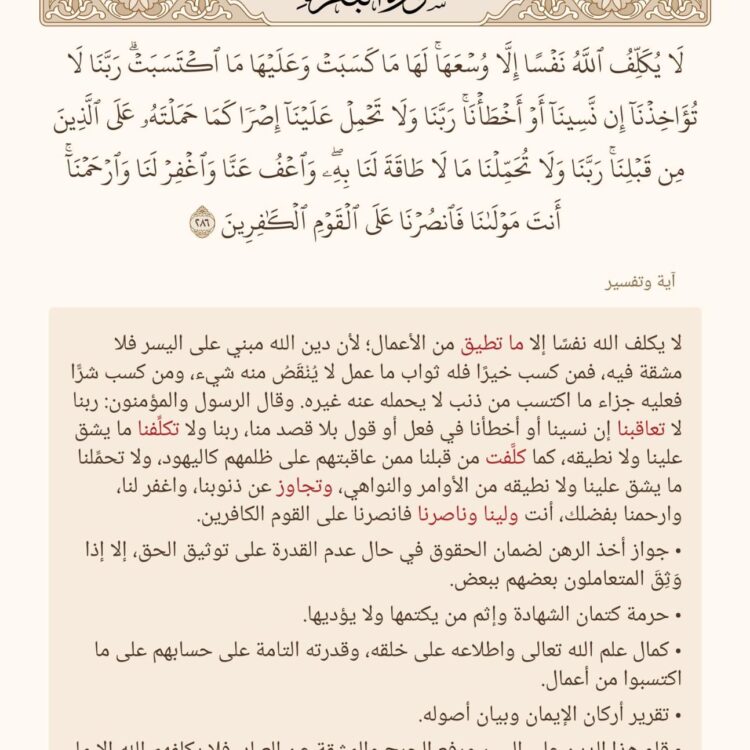 سورة البقرة
لَا يُكَلِّفُ ٱللَّهُ نَفْسًا إِلَّا وُسْعَهَاۚ لَهَا مَا كَسَبَتْ وَعَلَيْهَا مَا ٱكْتَسَبَتْۗ رَبَّنَا لَا
تُؤَاخِذْنَآ إِن نَّسِينَآ أَوْ أَخْطَأْنَاۚ رَبَّنَا وَلَا تَحْمِلْ عَلَيْنَآ إِصْرًا كَمَا حَمَلْتَهُۥ عَلَى ٱلَّذِينَ
مِن قَبْلِنَاۚ رَبَّنَا وَلَا تُحَمِّلْنَا مَا لَا طَاقَةَ لَنَا بِهِۦۖ وَٱعْفُ عَنَّا وَٱغْفِرْ لَنَا وَٱرْحَمْنَآۚ
أَنتَ مَوْلَىٰنَا فَٱنصُرْنَا عَلَى ٱلْقَوْمِ ٱلْكَٰفِرِينَ ٢٨٦
آية وتفسير
لا يكلف الله نفسًا إلا ما تطيق من الأعمال؛ لأن دين الله مبني على اليسر فلا
مشقة فيه، فمن كسب خيرًا فله ثواب ما عمل لا يُنْقَصُ منه شيء، ومن كسب شرًّا
فعليه جزاء ما اكتسب من ذنب لا يحمله عنه غيره. وقال الرسول والمؤمنون: ربنا
لا تعاقبنا إن نسينا أو أخطأنا في فعل أو قول بلا قصد منا، ربنا ولا تكلِّفنا ما يشق
علينا ولا نطيقه، كما كلَّفت من قبلنا ممن عاقبتهم على ظلمهم كاليهود، ولا تحمِّلنا
ما يشق علينا ولا نطيقه من الأوامر والنواهي، وتجاوز عن ذنوبنا، واغفر لنا،
وارحمنا بفضلك، أنت ولينا وناصرنا فانصرنا على القوم الكافرين.
• جواز أخذ الرهن لضمان الحقوق في حال عدم القدرة على توثيق الحق، إلا إذا
وَثِقَ المتعاملون بعضهم ببعض.
• حرمة كتمان الشهادة وإثم من يكتمها ولا يؤديها.
• كمال علم الله تعالى واطلاعه على خلقه، وقدرته التامة على حسابهم على ما
اكتسبوا من أعمال.
• تقرير أركان الإيمان وبيان أصوله.